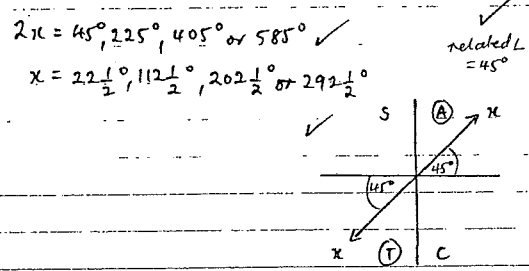 2x = 45°, 225°, 405° or 585° ✓
related L
= 45°
x = 22 1/2°, 112 1/2°, 202 1/2° or 292 1/2°
✓
S A x
45°
45°
x T C